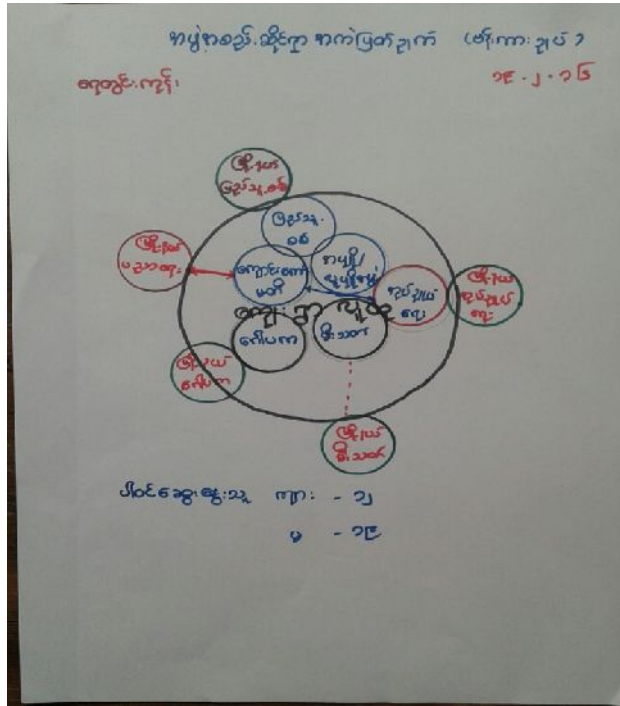 အဖွဲ့အစည်းဆိုင်ရာ အကဲဖြတ်ချက် (ဗန်းကားချပ်)
ရေတွင်းကုန်း
၁၉.၂.၁၆
မြို့နယ်
ပြည်သူ့စစ်
ပြည်သူ့
စစ်
မြို့နယ်
ပညာရေး
ကျောင်းကော်
မတီ
အုပ်ချုပ်
ရေး
မြို့နယ်
အုပ်ချုပ်
ရေး
ကျေးရွာ လူထု
မီးသတ်
မြို့နယ်
မြို့နယ်
မီးသတ်
ပါဝင်ဆွေးနွေးသူ ကျား - ၁၂
မ - ၁၉